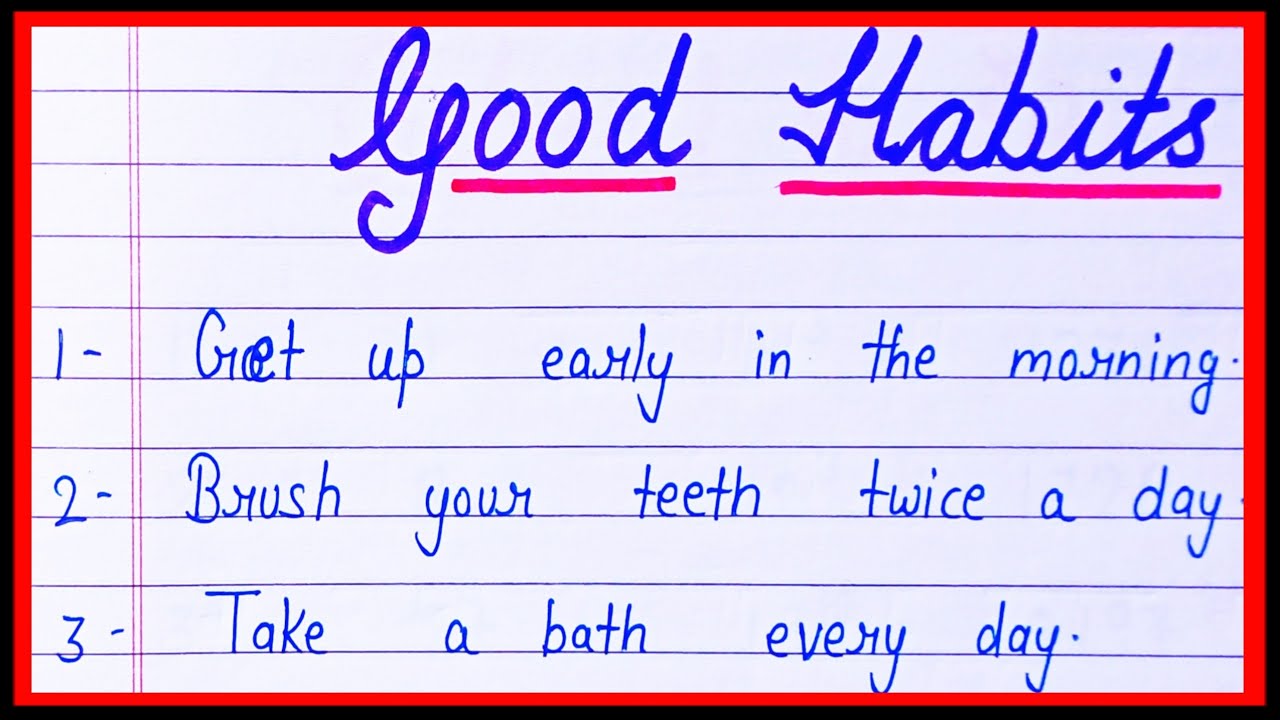 Good Habits
1- Get up early in the morning.
2- Brush your teeth twice a day.
3- Take a bath every day.